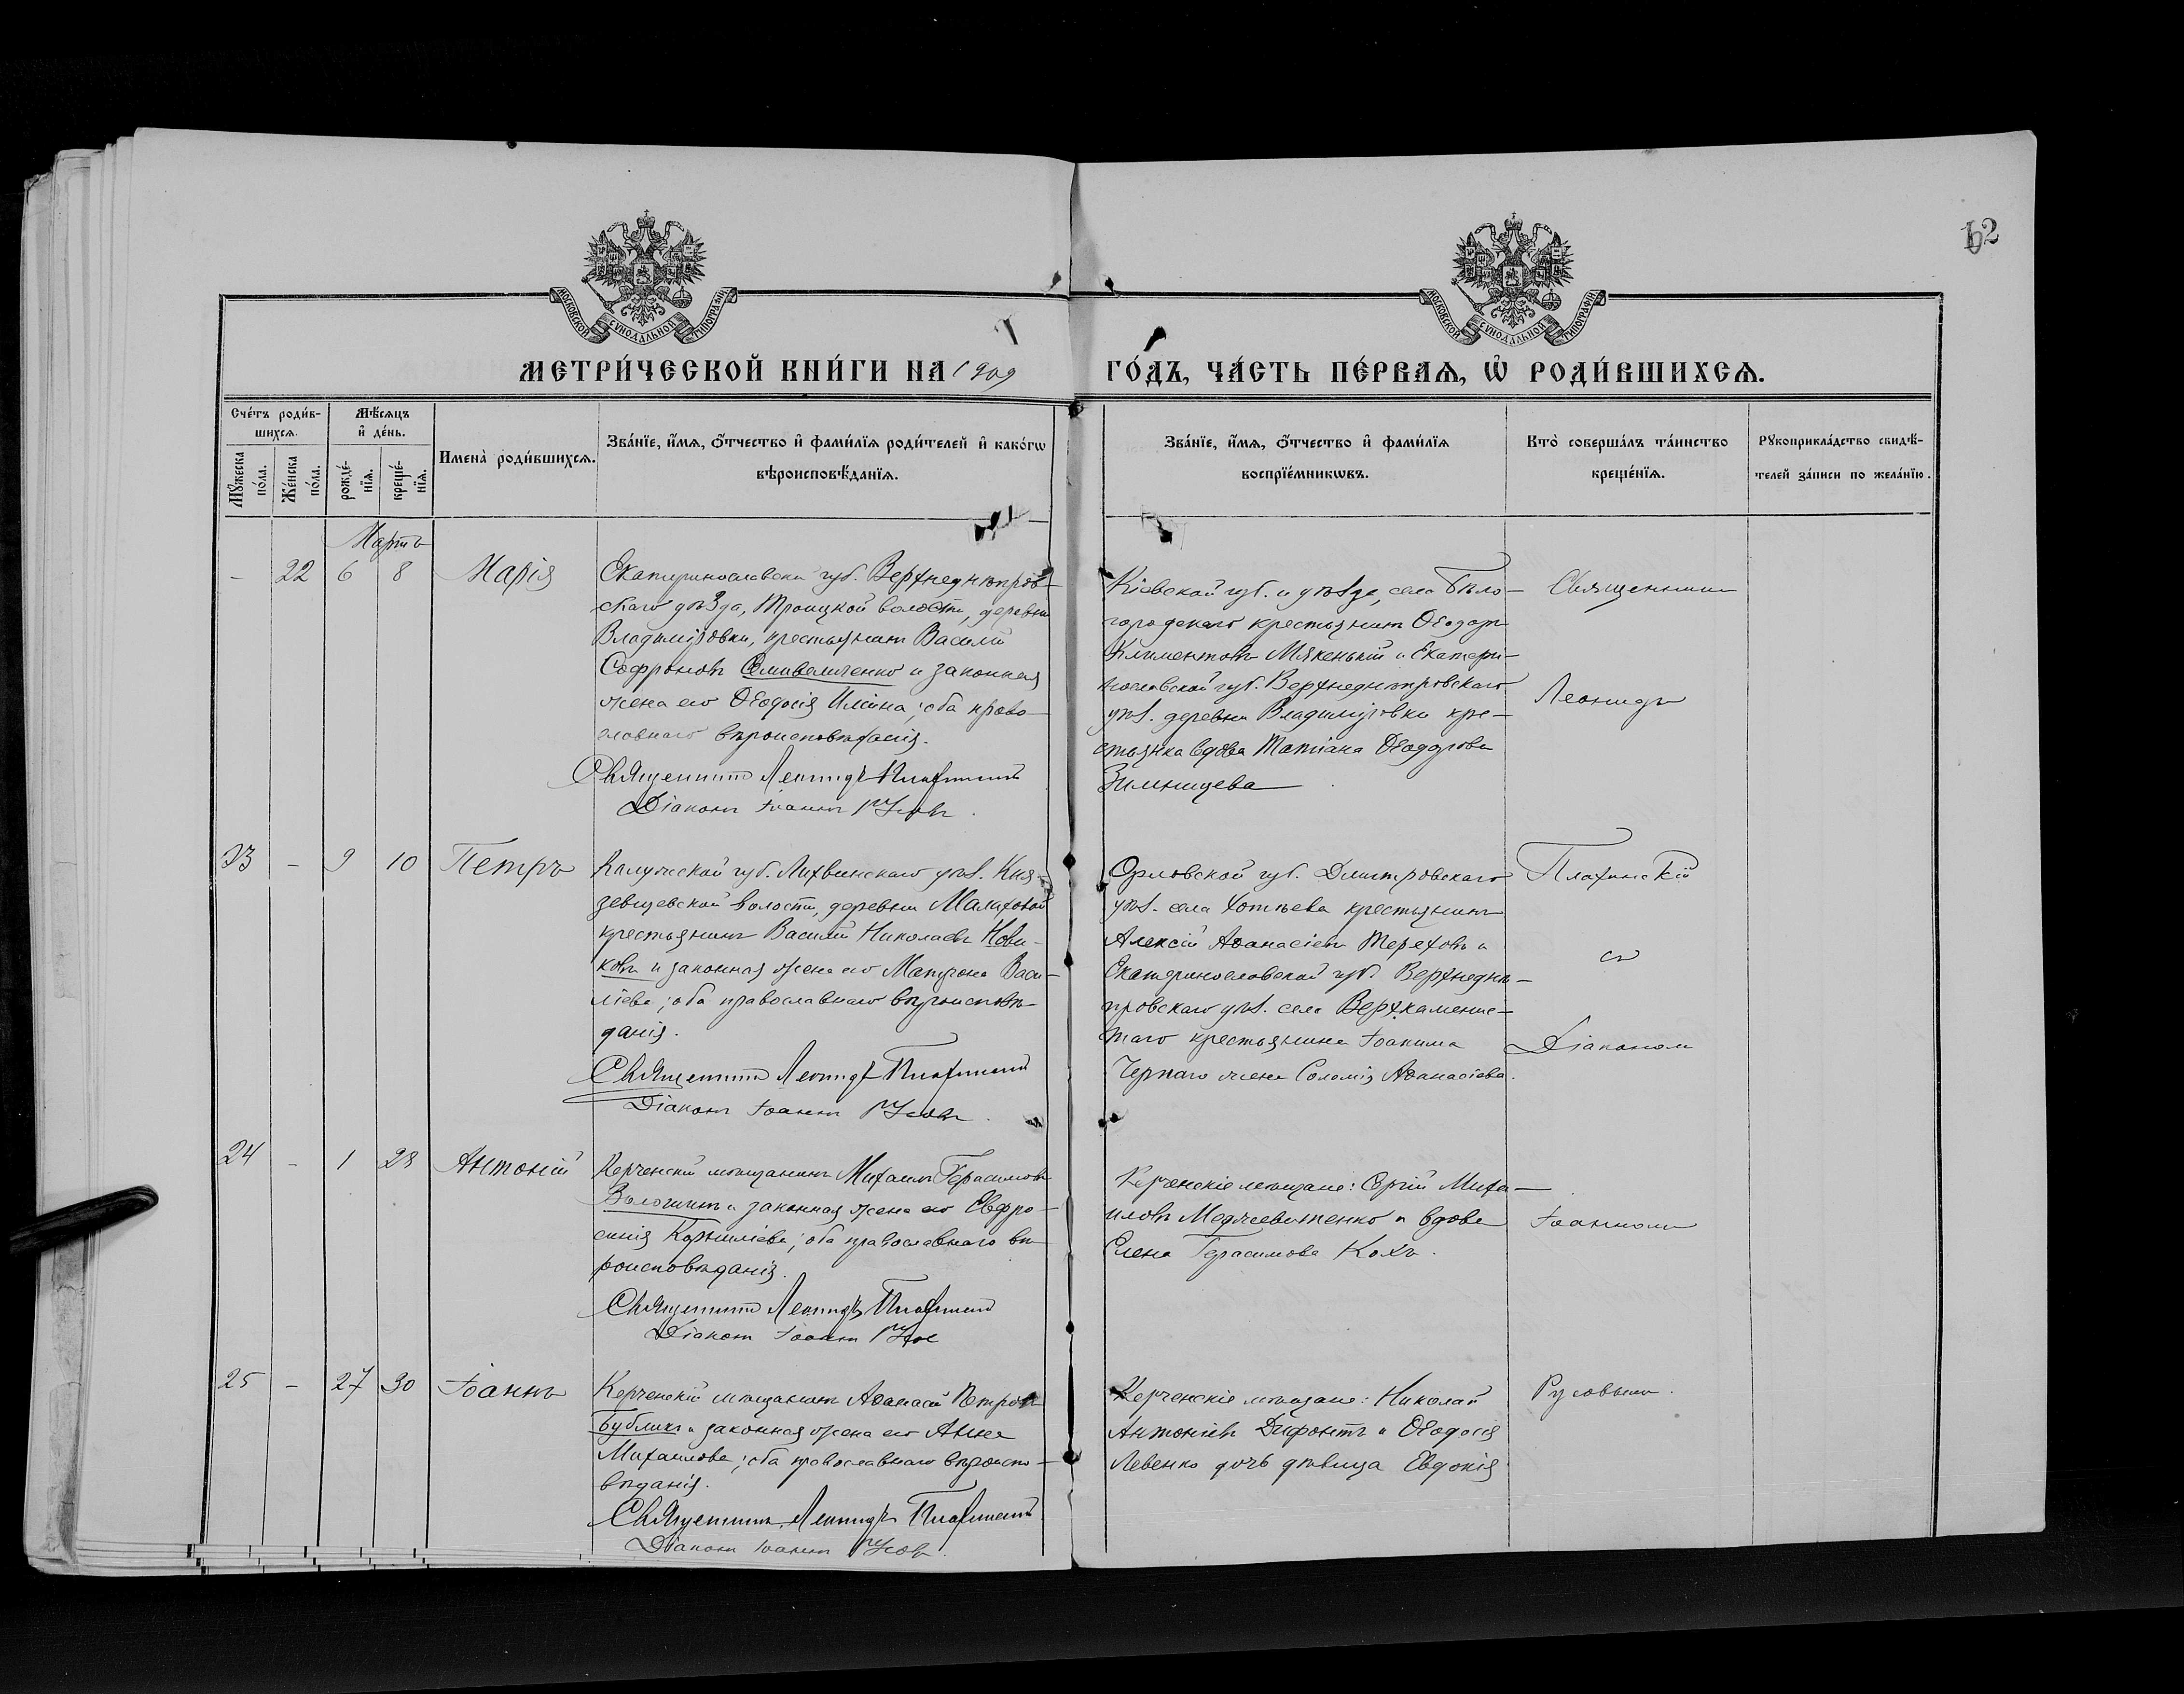 62
МОСКОВСКОЙ СѴНОДАЛЬНОЙ ТИПОГРАФІИ
МОСКОВСКОЙ СѴНОДАЛЬНОЙ ТИПОГРАФІИ
МЕТРИ́ЧЕСКОЙ КНИ́ГИ НА 1909 ГО́ДЪ, ЧА́СТЬ ПЕ́РВАѦ, Ѡ҆ РОДИ́ВШИХСѦ.
Сче́тъ роди́в-
шихсѧ.
Мѣ́сѧцъ
и҆ де́нь.
Мꙋ́жеска
по́ла.
Же́нска
по́ла.
рожде́-
нїѧ.
креще́-
нїѧ.
Имена̀ роди́вшихсѧ.
Зва́нїе, и҆́мѧ, ѻ҆́тчество и҆ фами́лїѧ роди́телей и҆ како́гѡ
вѣроисповѣ́данїѧ.
Зва́нїе, и҆́мѧ, ѻ҆́тчество и҆ фами́лїѧ
воспрїе́мникѡвъ.
Кто̀ соверша́лъ та́инство
креще́нїѧ.
Рꙋкоприкла́дство свидѣ́-
телей за́писи по жела́нїю.
Мартъ
- 22 6 8 Марія
Екатеринославской губ. Верхнеднѣпров-
скаго уѣзда, Троицкой волости, деревни
Владиміровки, крестьянинъ Василій
Софроновъ и законная
жена его Ѳеодосія Ильина; оба право-
славнаго вѣроисповѣданія.
Священникъ Леонидъ Плахинскій
Діаконъ Іоаннъ Русовъ.
Кіевской губ. и уѣзда, села Бѣло-
городскаго крестьянинъ Ѳеодоръ
Климентовъ Мякенькій и Екатери-
нославской губ. Верхнеднѣпровскаго
уѣз. деревни Владиміровки кре-
стьянка вдова Татіана Ѳеодорова
Зильницева
Священникъ
Леонидъ
23 - 9 10 Петръ
Калужской губ. Лихвинскаго уѣз. Кня-
зевщевской волости, деревни Малаховой
крестьянинъ Василій Николаевъ Нови-
ковъ и законная жена его Матрона Васи-
ліева; оба православнаго вѣроисповѣ-
данія.
Священникъ Леонидъ Плахинскій
Діаконъ Іоаннъ Русовъ.
Орловской губ. Дмитровскаго
уѣз. села Хотѣева крестьянинъ
Алексій Аѳанасіевъ Тереховъ и
Екатеринославской губ. Верхнеднѣ-
провскаго уѣз. села Верхкаменис-
таго крестьянина Іоакима
Чернаго жена Соломія Аѳанасіева.
Плахинскій
съ
Діакономъ
24 - 1 28 Антоній
Керченскій мѣщанинъ Михаилъ Герасимовъ
Волошинъ и законная жена его Евфро-
синія Корниліева; оба православнаго вѣ-
роисповѣданія.
Священникъ Леонидъ Плахинскій
Діаконъ Іоаннъ Русов
Керченскіе мѣщане: Сергій Миха-
иловъ и вдова
Елена Герасимова Кохъ.
Іоанномъ
25 - 27 30 Іоаннъ
Керченскій мѣщанинъ Аѳанасій Петровъ
Бубликъ и законная жена его Анна
Михаилова; оба православнаго вѣроиспо-
вѣданія.
Священникъ Леонидъ Плахинскій
Діаконъ Іоаннъ Русовъ.
Керченскіе мѣщане: Николай
Антоніевъ Дифонтъ и Ѳеодосія
Левенко дочь дѣвица Евдокія
Русовымъ.